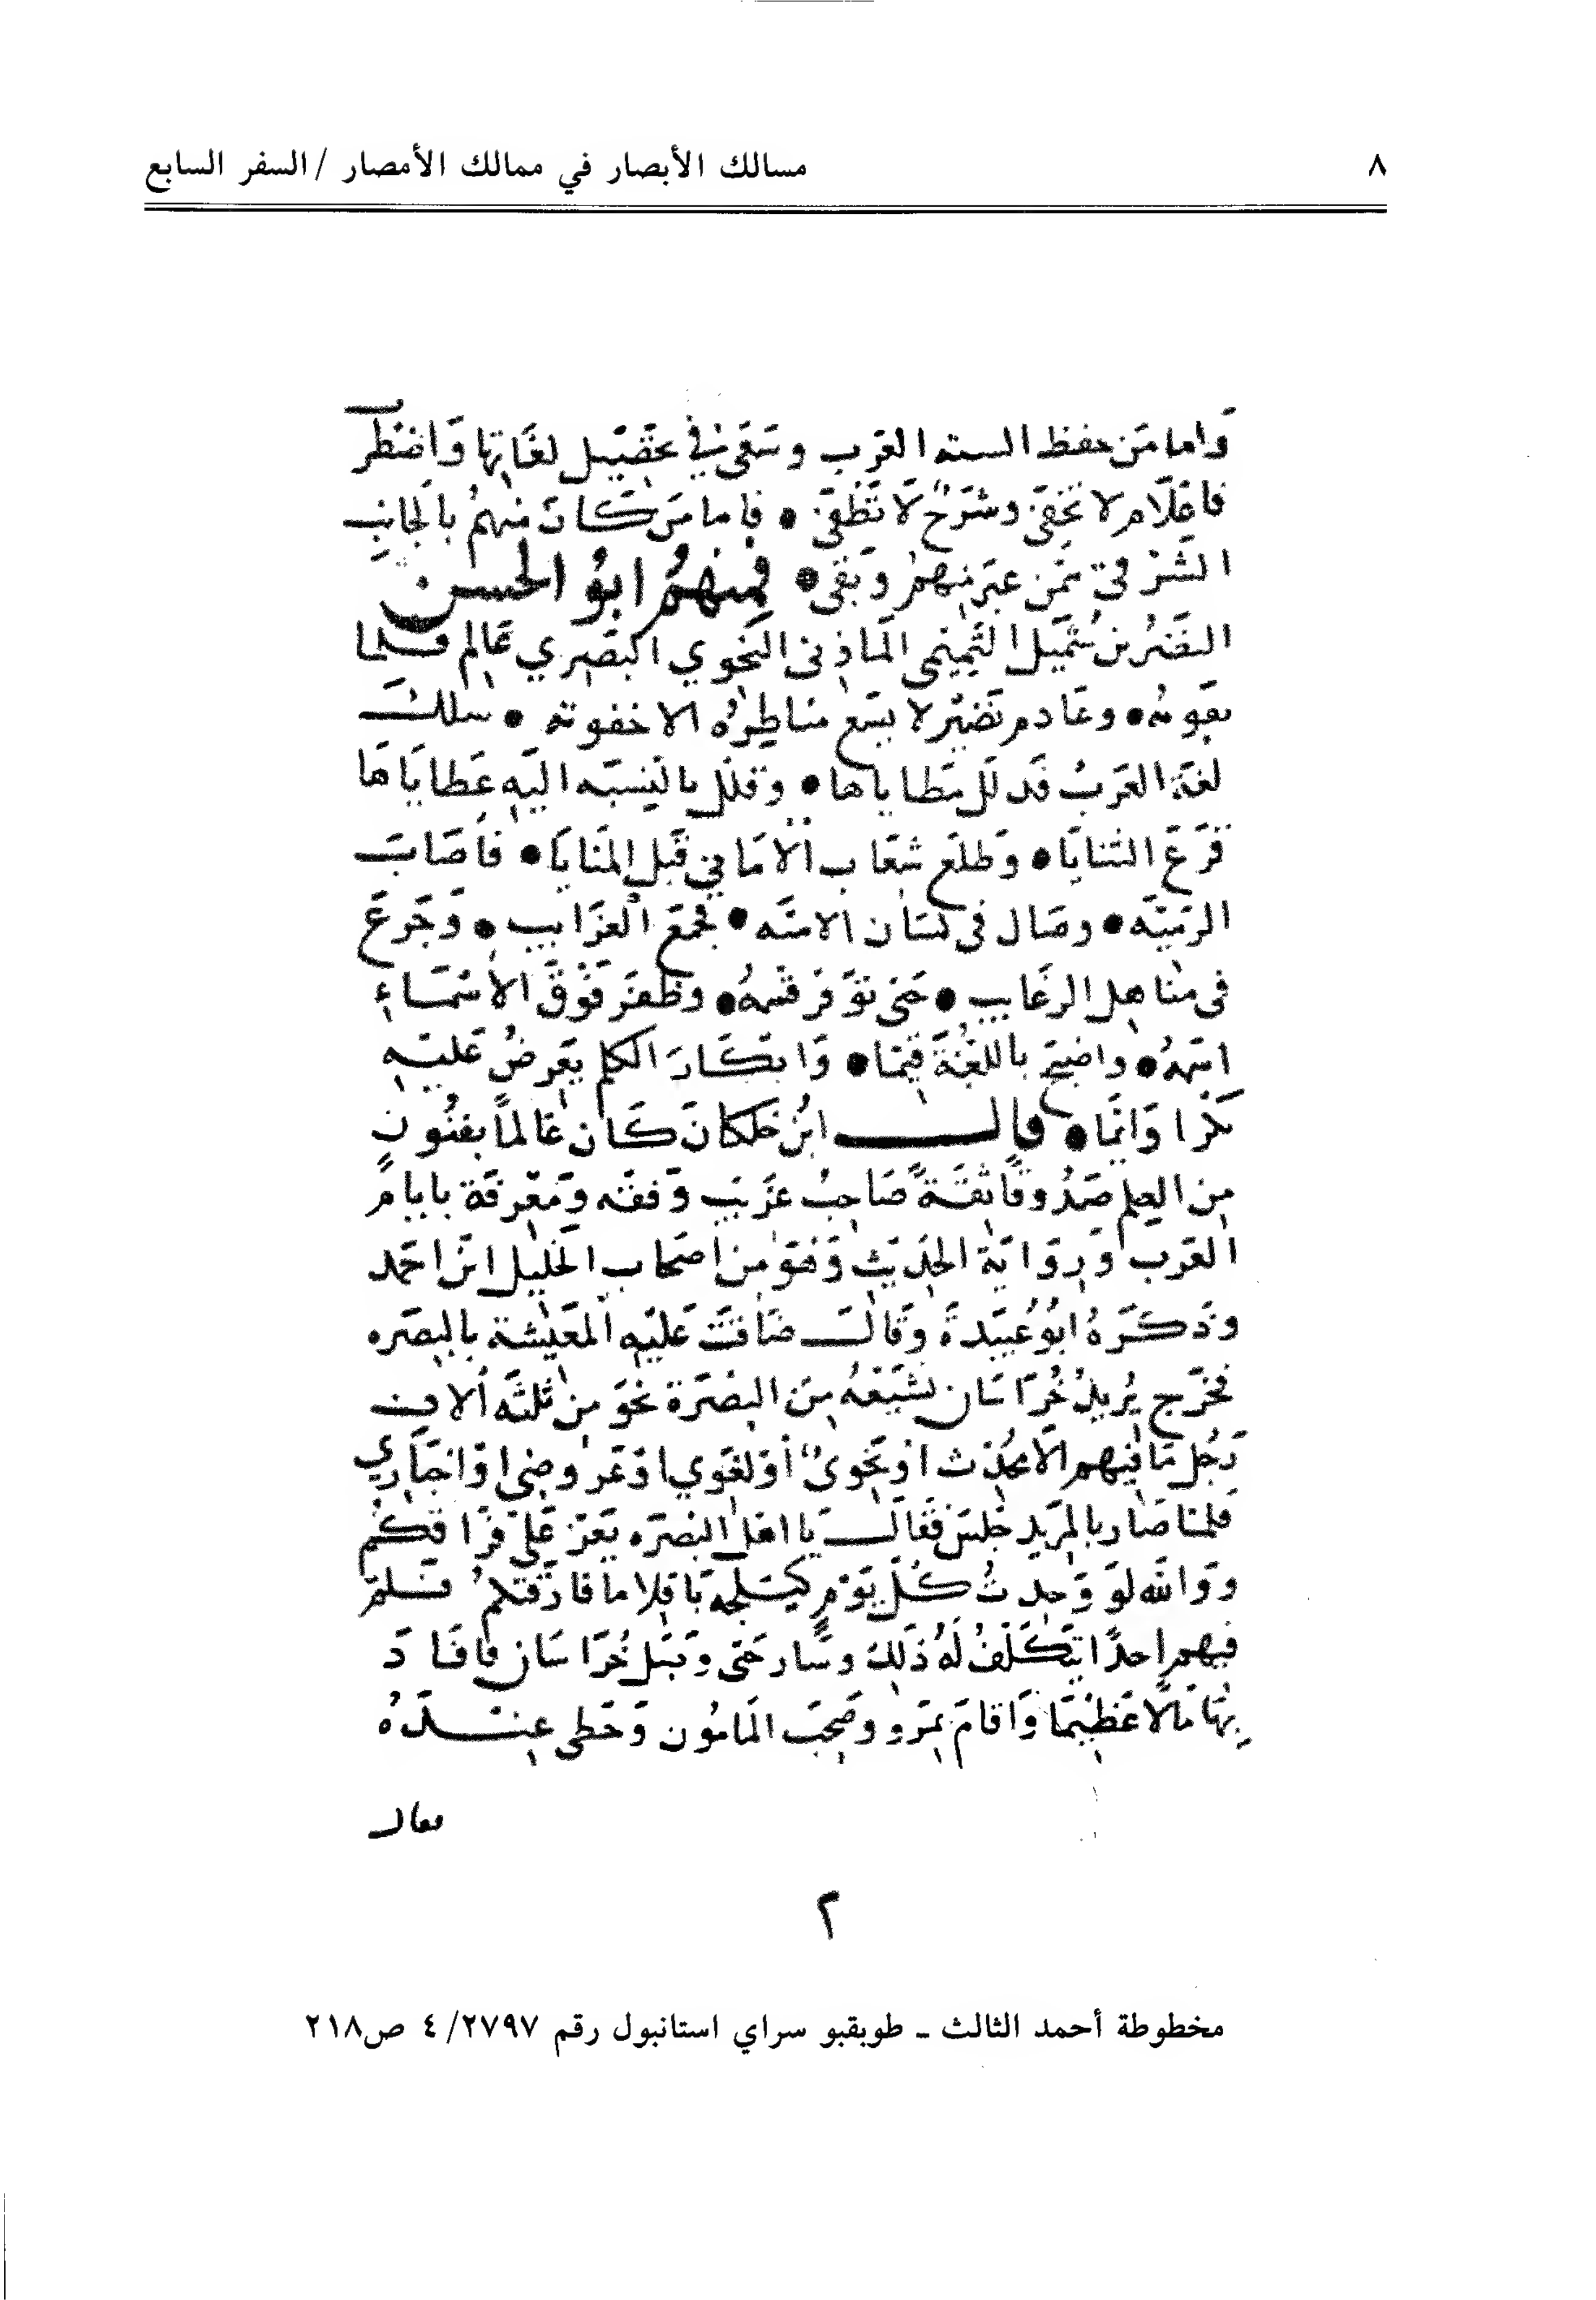 ٨
مسالك الأبصار في ممالك الأمصار /السفر السابع
وَاما مَن حفظ السنه العَرب وسَعَى في تحصيل لغاتها وَاضطرب
فاعلام لا تخفى وشرح لا تطفى • فاما من كان منهم بالجانب
الشرقي ممن عبر منهم وبقى • فمنهم ابو الحسن
النضر بن شميل التميمى المازنى النحوي البصري عالم قلما
يفوته • وعادم نضير لا يسع مناظره الا خفوته • سلك
لغة العرب فدلل مطاياها • وقلل بالنسبه اليه عطاياها
فرع الثنايا • وطلع شعاب الاماني قبل المنايا • فاصاب
الرميه • وصال فى الامنه • فجمع الغرايب • وجرع
فى مناهل الرغايب • حتى توفر قسمه • وظفر فوق الاسماء
اسمه • واضحى باللغة قيما • وابكار الكلم يعرض عليه
بكرا وايما • قال ابن خلكان كان عالما بفنون
من العلم صدوقا ثقة صاحب غريب وفقه ومعرفة بايام
العرب ورواية الحديث وهو من اصحاب الخليل ابن احمد
وذكره ابو عبيدة وقال ضاقت عليه المعيشة بالبصره
فخرج يريد خراسان نشيعه من البصرة نحو من ثلثه الاف
رجل ما فيهم الا محدث او نحوى او لغوي او عروضى او اخباري
فلما صار بالمربد جلس فقال يا اهل البصره يعز على فراقكم
ووالله لو وجدت كل يوم كيلجه باقلا ما فارقتكم فلم
فيهم احدا يتكلف له ذلك وسار حتى وصل خراسان فافاد
بها مالا عظيما واقام بمرو وصحب المامون وحظى عنده
فقال
٢
مخطوطة أحمد الثالث ـ طوبقبو سراي استانبول رقم ٢٧٩٧/ ٤ ص٢١٨